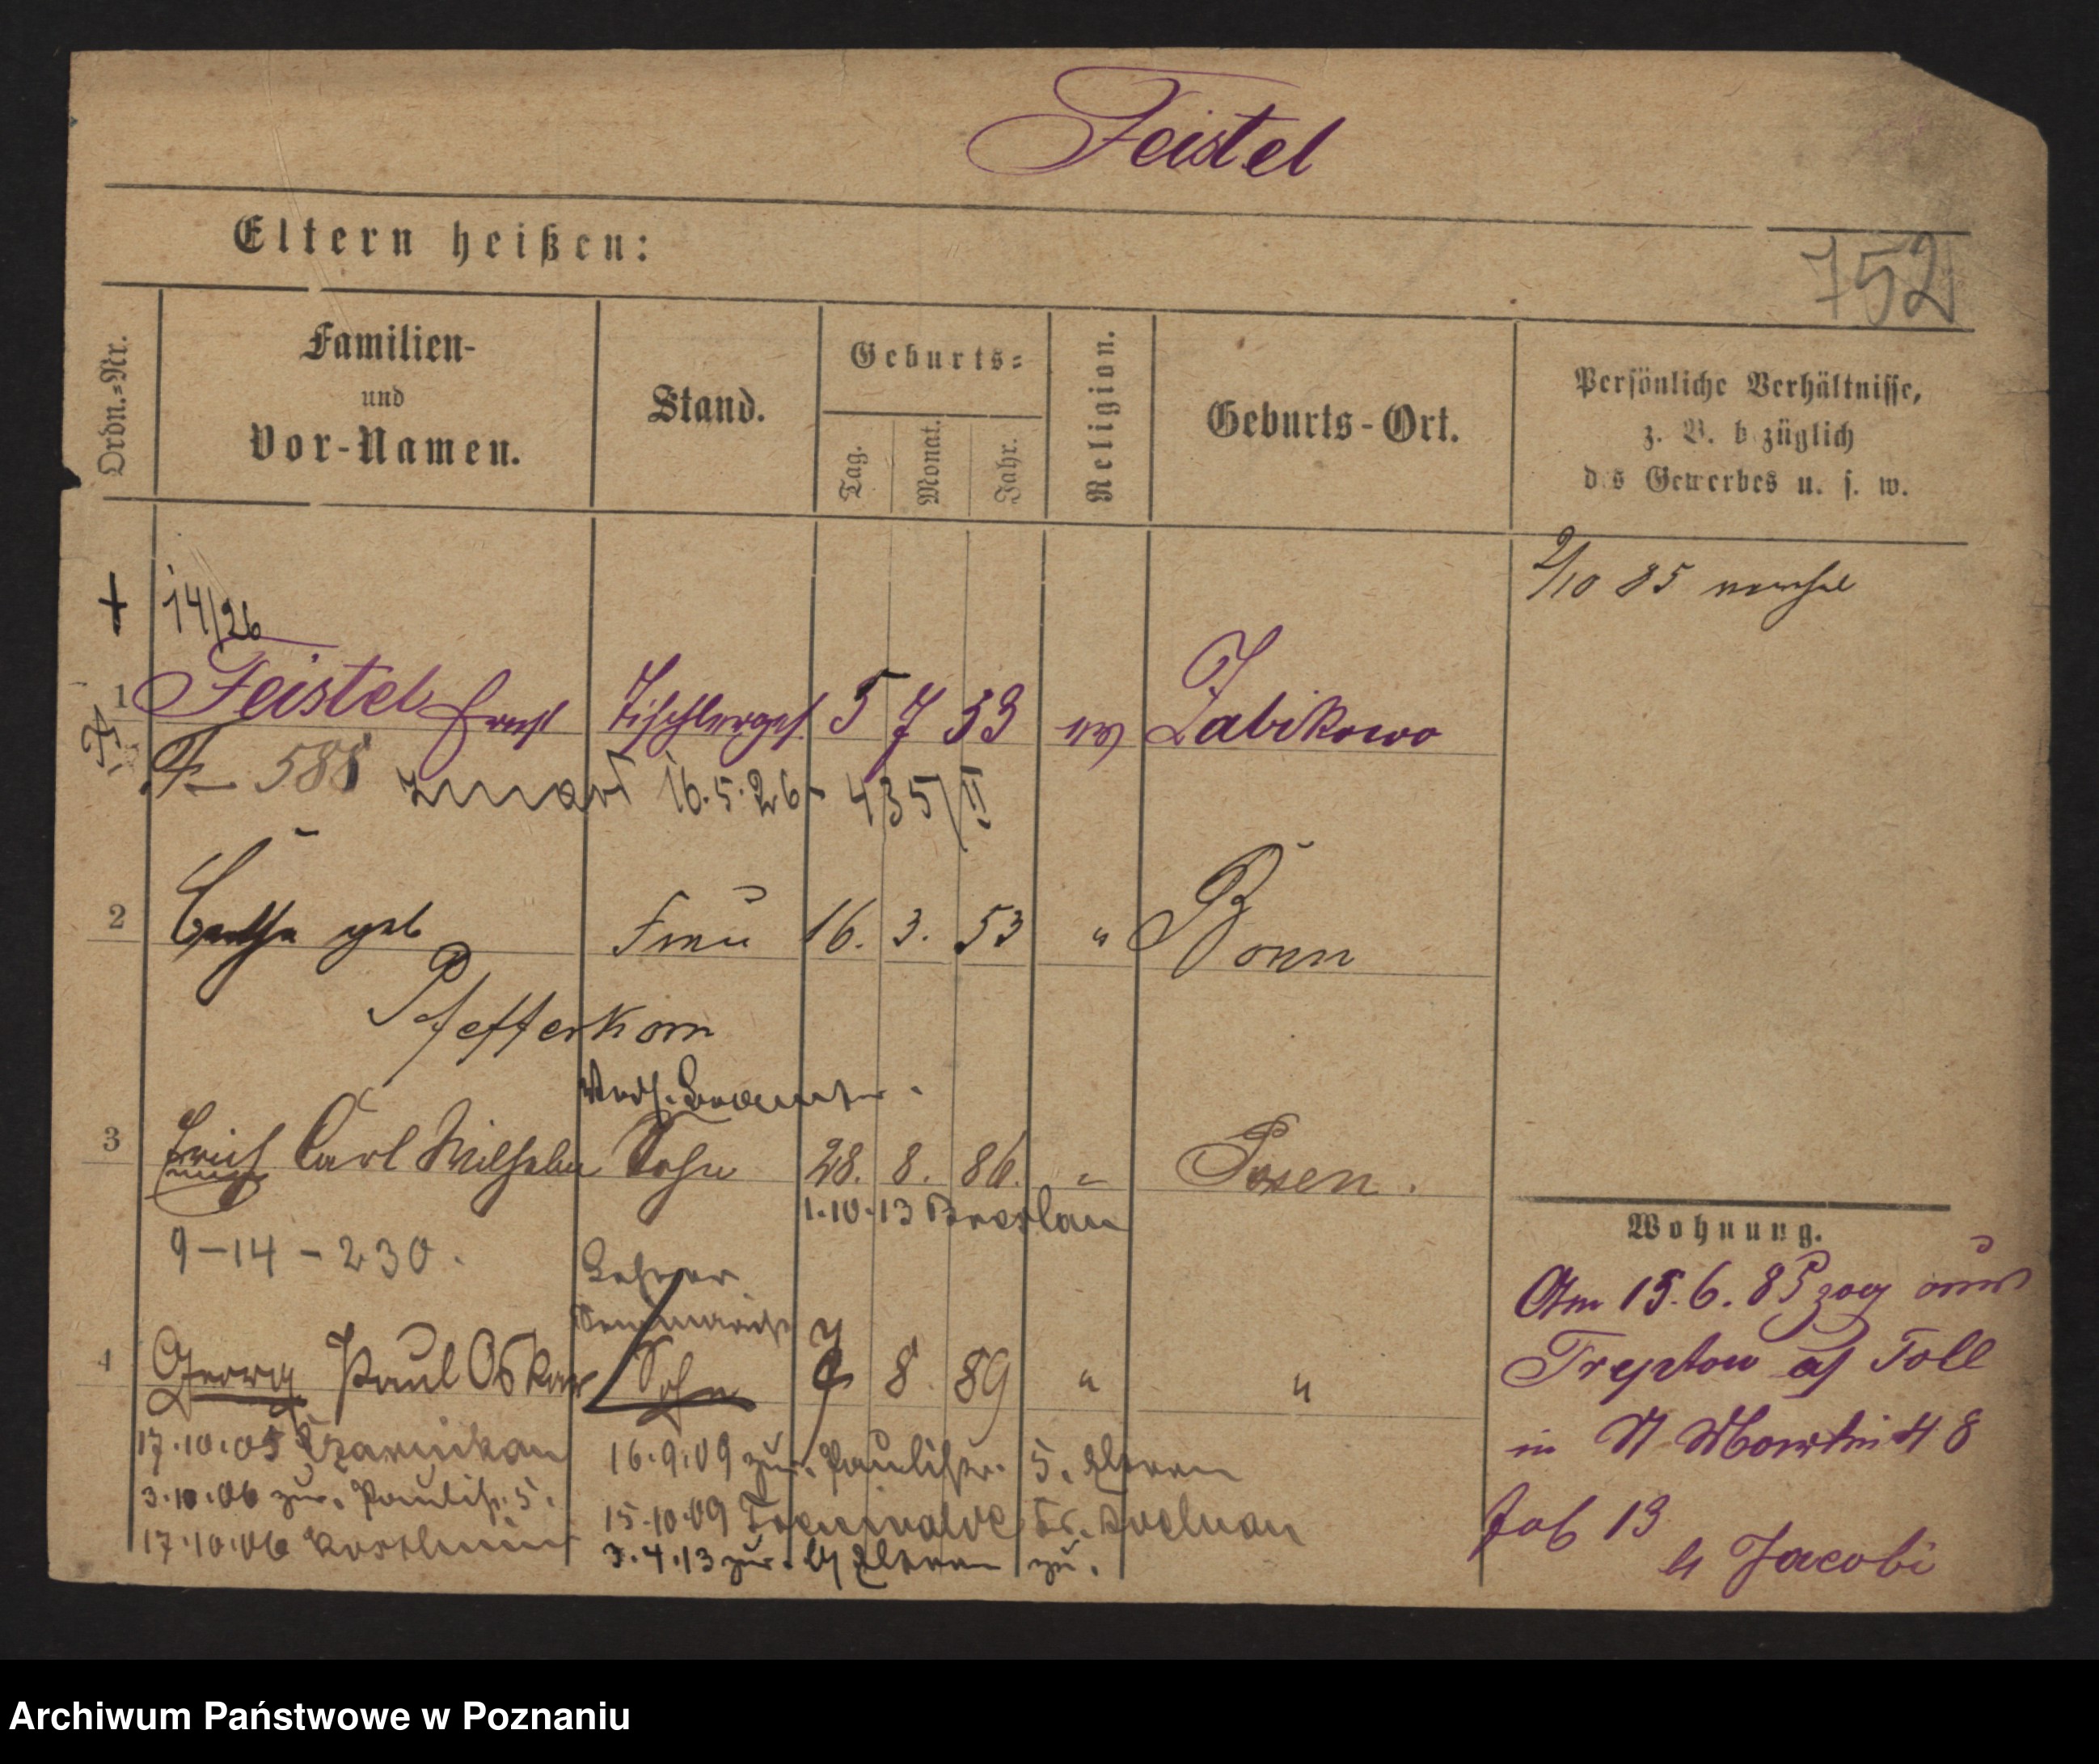 Feistel
Eltern heißen:
752
Ordn.=Nr.
Familien-
und
Vor-Namen.
Stand.
Geburts=
Tag.
Monat.
Jahr.
Religion.
Geburts-Ort.
Persönliche Verhältnisse,
z. B. b züglich
d s Gewerbes u. s. w.
+ 14/26
2/10 85
1 Feistel Ernst Tischlerges. 5 7 53 ev Zabikowo
F 588 zmarł 16.5.26 - 435/II
2 geb Frau 16. 3. 53 " Bonn
Pfefferkorn
3 Erich Carl Wilhelm Sohn 28. 8. 86. " Posen.
1.10.13 Breslau
9-14-230.
Lehrer
Seminarist
4 Georg Paul Oskar Sohn 8. 89 " "
17.10.05 Czarnikau
3.10.06 zur. Paulistr. 5.
17.10.06 Koschmin
16.9.09 zur. Paulistr. 5. Eltern
15.10.09
3.4.13 zur. Eltern zu.
Wohnung.
Am 15.6.85 zog aus
Treptow a/ Toll
in St Martin 48
Hof 13
b Jacobi
Archiwum Państwowe w Poznaniu